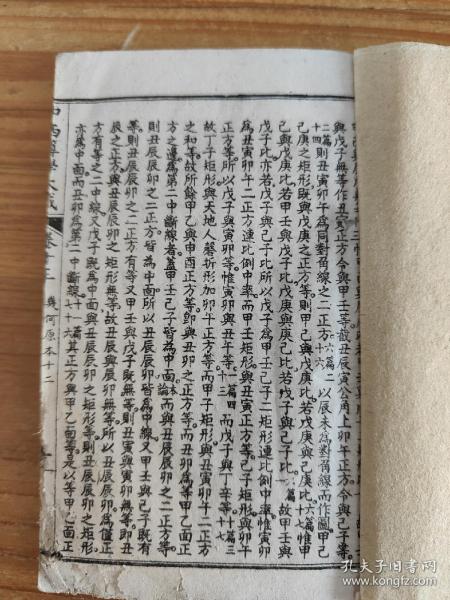 與戊子無等作丑寅正方令與甲壬等截丑辰寅公角上卯午正方令與己子等
二篇十四則丑寅卯午為同對角線之二正方六篇二十六以辰未為對角線而作圖甲己
己庚之矩形既與戊庚之正方等則甲己與戊庚比若戊庚與己庚比六篇十七惟甲
己與戊庚比若甲壬與戊子比戊庚與庚己比若戊子與己子比六篇一故甲壬與
戊子比亦若戊子與己子比所以戊子為甲壬己子二矩形連比例中率惟寅卯
為丑寅卯午二正方連比例中率而甲壬與丑寅正方等己子矩形與卯午
正方等所以戊子與寅卯等惟寅卯與丑午等一篇四十三而戊子與丁辛等一篇三十七
故丁子矩形與天地人磬折形加卯午正方等而甲子矩形與丑寅卯午二正方
之和等故所餘甲乙與申酉正方等即與丑卯之正方等而丑卯與甲乙面正
方之邊為第二中斷線者蓋甲壬己子皆為中面本論而與丑辰辰卯之二正方等
則丑辰辰卯之二正方皆為中面所以丑辰辰卯皆為中線又甲壬與己子既有
等則丑辰辰卯之二正方有等又甲壬與戊子既無等則丑寅與寅卯無等即丑
辰之正方與丑辰辰卯之矩形無等故丑辰與辰卯無等所以丑辰辰卯為僅正
方有等之二中線又戊子既為中面與丑辰辰卯之矩形等則丑辰辰卯之矩形
亦為中面而丑卯為第二中斷線十七六其正方與甲乙面等是以等甲乙面正
中西算學大成
卷十二
幾何原本十二
孔夫子旧书网